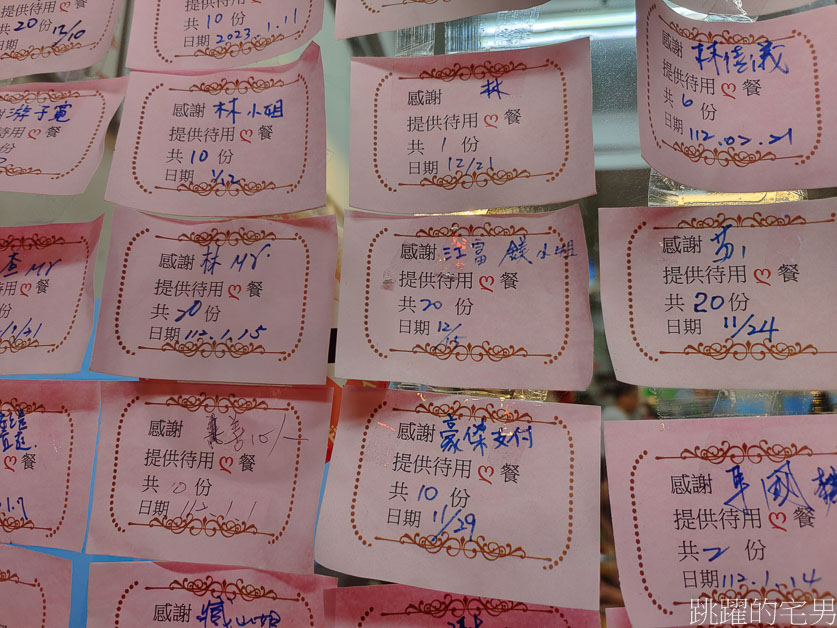 共20份
12/10
共10份
日期2023.1.11
游子寬
提供待用餐
感謝 林小姐
提供待用餐
共10份
日期 1/12
感謝 林
提供待用餐
共1份
日期 12/21
感謝 林
提供待用餐
共6份
日期 112.02.21
查Mr
提供待用餐
份
感謝 林Mr.
提供待用餐
共20份
日期 112.1.15
感謝 江富錢小姐
提供待用餐
共20份
日期 12/15
感謝
提供待用餐
共20份
日期 11/24
餐
感謝
提供待用餐
共10份
日期 112.1.1
感謝 豪傑支付
提供待用餐
共10份
日期 11/29
感謝
提供待用餐
共2份
日期112.1.14
感謝 臧小姐
跳躍的宅男